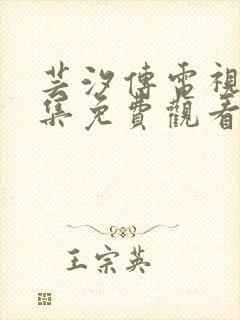 芸汐傳電視
集免費觀看
王宗英